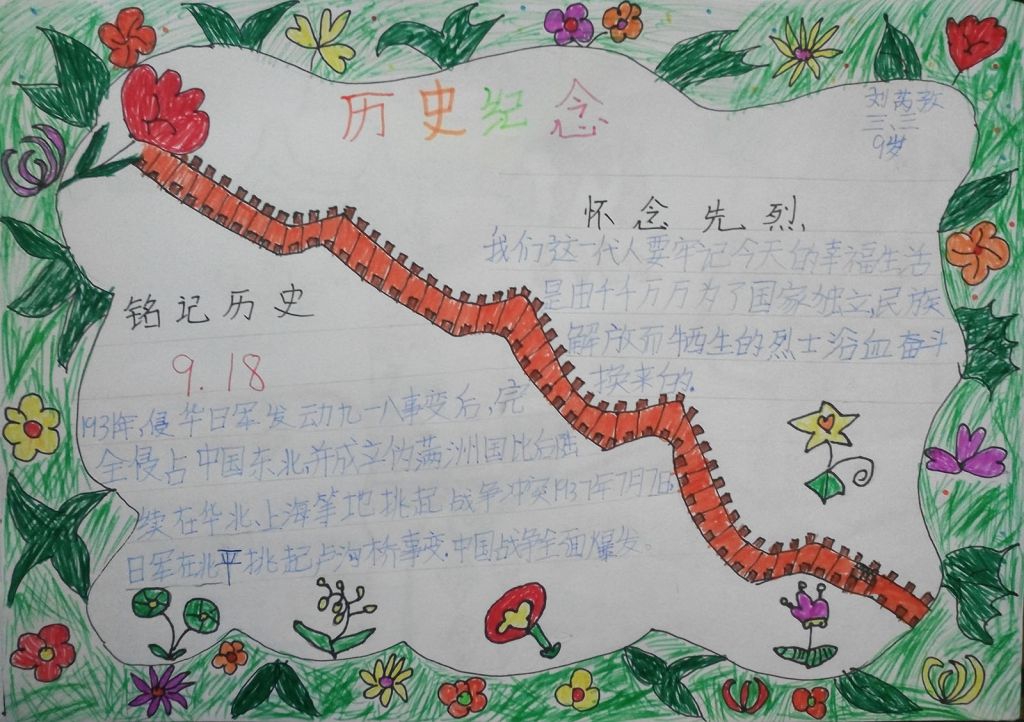 历史纪念
刘芮孜
三、三
9岁
怀念先烈
我们这一代人要牢记今天的幸福生活
是由千千万万为了国家独立,民族
解放而牺牲的烈士浴血奋斗
换来的.
铭记历史
9.18
1931年,侵华日军发动九一八事变后,完
全侵占中国东北,并成立伪满洲国比后陆
续在华北、上海等地挑起战争冲突1937年7月7日
日军在北平挑起卢沟桥事变.中国战争全面爆发。